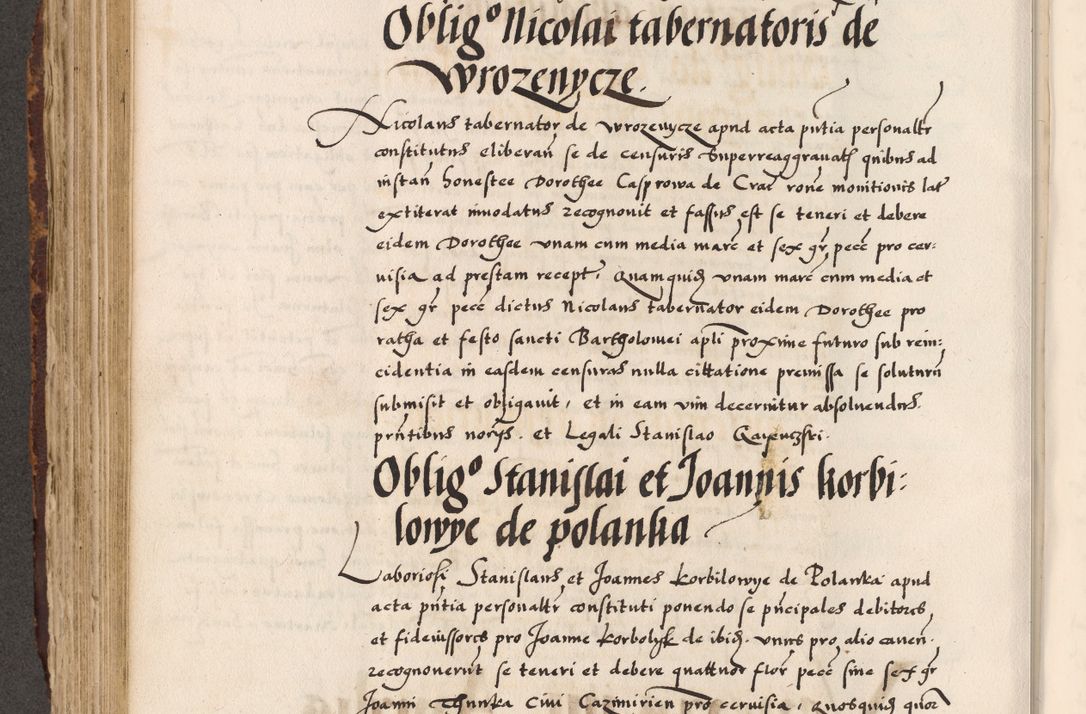 Oblig° Nicolai tabernatoris de
Wrozenycze.
Nicolaus tabernator de wrozenycze apud acta pñtia personalr
constitutus eliberañ se de censuris superreaggravat quibus ad
instañ honestee Dorothee Casprowa de Crac rone monitionis lat
extiterat innodatus recognovit et fassus est se teneri et debere
eidem Dorothee unam cum media marc et sex gr pecc pro cer:
visia ad prestam recept, Quamquid unam marc cum media et
sex gr pecc dictus Nicolaus tabernator eidem Dorothee pro
ratha et festo sancti Bartholomei apli proxime futuro sub rein:
cidentia in easdem censuras nulla cittatione premissa se soluturũ
submisit et obligavit, et in eam vim decernitur absolvendus.
pñtibus norijs. et Legali Stanislao
Oblig° Stanislai et Joannis korbi:
lowye de polanka
Laboriosi Stanislaus et Joannes korbilowye de Polanka apud
acta pñtia personalr constituti ponendo se pñcipales debitores
et fideiussores pro Joanne korbolyk de ibid. unus pro alio caven.
recognoverũt se teneri et debere quattuor flor pecc sine sex gr
Joanni Civi Cazimirien pro cervisia, Quosquid quor